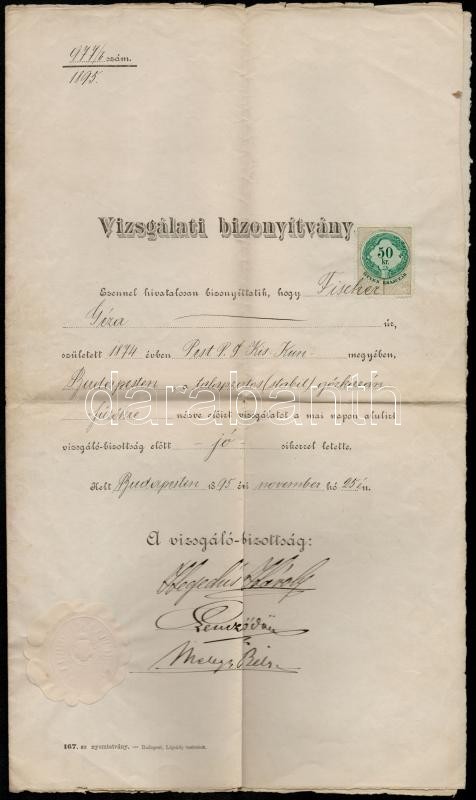 977/6 szám.
1895.
Vizsgálati bizonyítvány
50
kr.
Ezennel hivatalosan bizonyíttatik, hogy Fischer
Géza úr,
született 1874 évben Pest P. S. Kis Kun megyében,
Budapesten a (stabil) gőzkazán
fűtésre nézve előirt vizsgálatot a mai napon alulirt
vizsgáló-bizottság előtt - jó - sikerrel letette.
Kelt Budapesten 1895 évi november hó 25 én.
A vizsgáló-bizottság:
Hegedűs Károly
Béla
darabanth
167. sz nyomtatvány. — Budapest, Légrády testvérek.